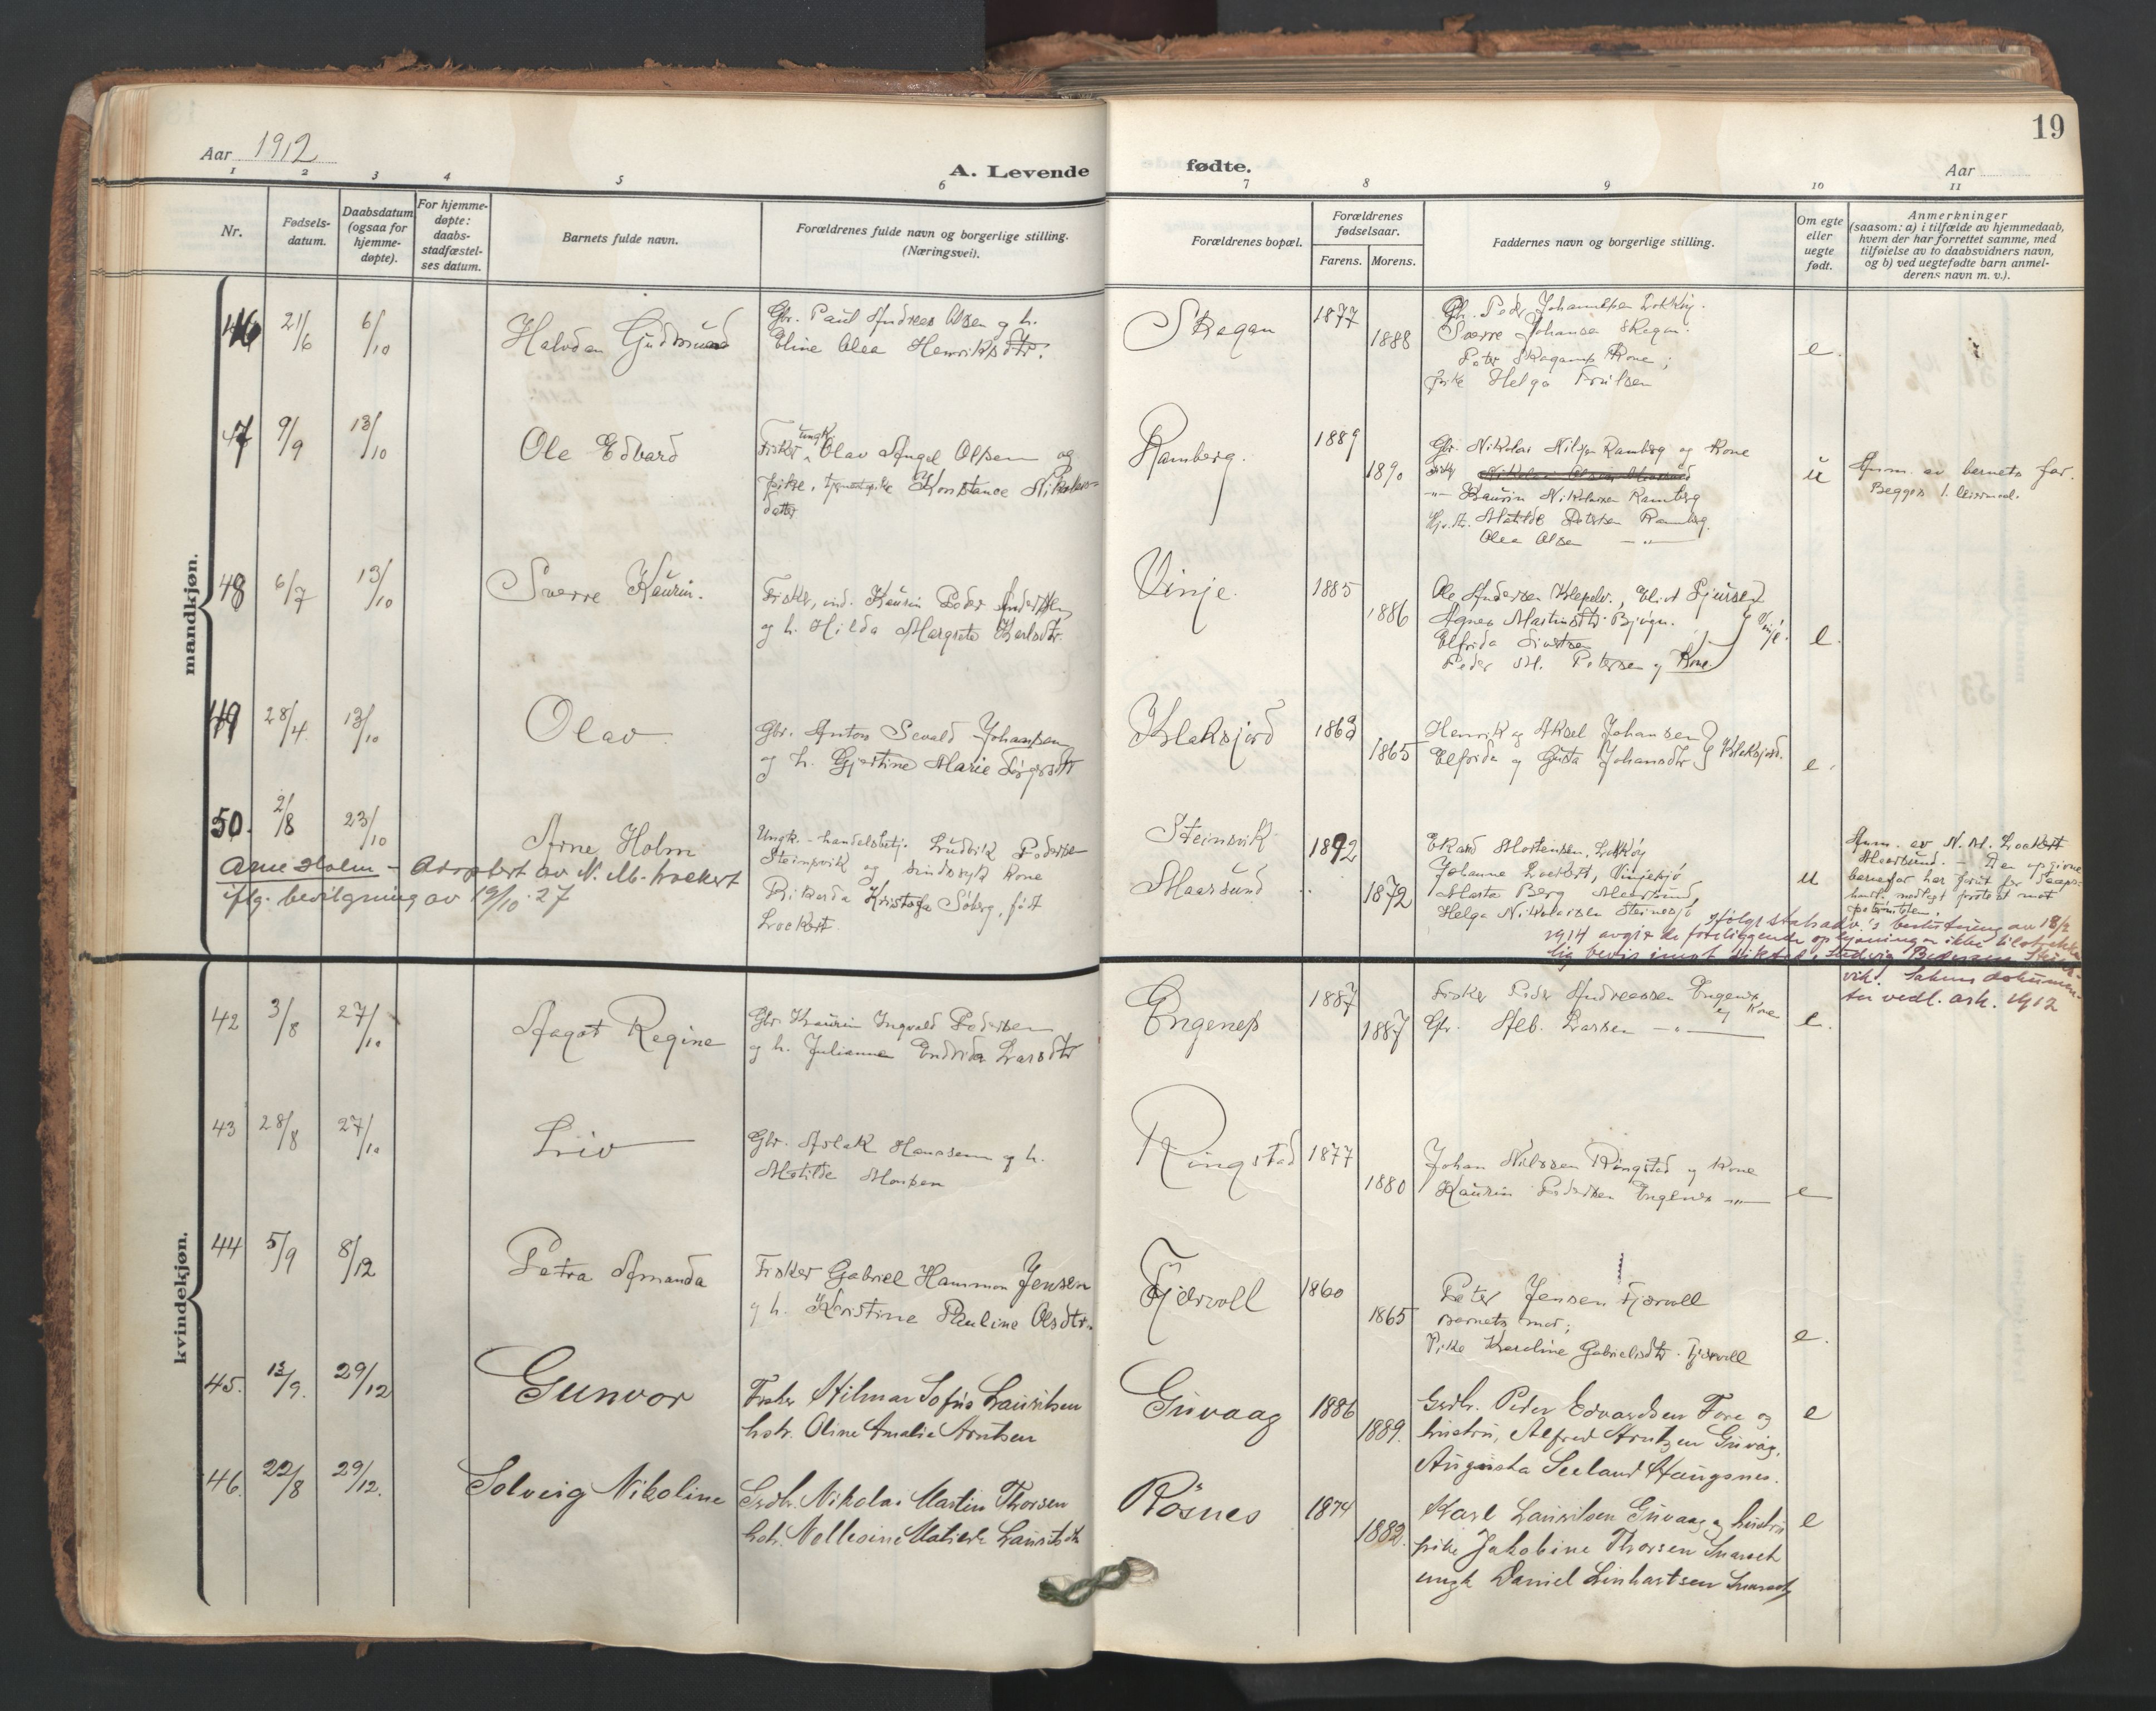 19
Aar 1912
A. Levende
fødte.
Aar
1 2 3 4 5 6 7 8 9 10 11
Nr.
Fødsels-
datum.
Daabsdatum
(ogsaa for
hjemme-
døpte).
For hjemme-
døpte:
daabs-
stadfæstel-
ses datum.
Barnets fulde navn.
Forældrenes fulde navn og borgerlige stilling.
(Næringsvei).
Forældrenes bopæl.
Forældrenes
fødselsaar.
Farens. Morens.
Faddernes navn og borgerlige stilling.
Om egte
eller
uegte
født.
Anmerkninger
(saasom: a) i tilfælde av hjemmedaab,
hvem der har forrettet samme, med
tilføielse av to daabsvidners navn,
og b) ved uegtefødte barn anmel-
derens navn m. v.).
mandkjøn.
46 21/6 6/10 Halvdan Gudmund
Gbr. Paul Andreas Olsen og h.
Eline Olea Henriksdtr.
Skagan 1877 1888
Gbr. Peder Johannesen Lokkøy.
Sverre Johansen Skagan.
Peter Skagans Kone;
pike Helga Trulsen
e.
47 9/9 13/10 Ole Edvard
Fisker, ungk. Olav Angel Olsen og
pike, Konstance Nikolai-
datter
Ramberg. 1889 1890
Gbr. Nikolai Nilsen Ramberg og Kone
-"- Kaurin Nikolaisen Ramberg
Matilde Petersen Ramberg.
Olea Olsen -"-
u
Anm. av barnets far.
Begges 1. leiermaal.
48 6/7 13/10 Sverre Kaurin.
Fisker, ind. Kaurin Peder Andersen
og h. Hilda Margrete Karlsdtr.
Vinje. 1885 1886
Ole Andersen Klepelv., Eliot Sjursen
Agnes Martinsdtr. Bjørgn.
Elfrida Sivertsen
Peder M. Petersen og Kone
Vinje.
e.
49 28/4 13/10 Olav
Gbr. Anton Sevald Johansen
og h. Gjertine Marie
Klaksjord 1863 1865
Henrik og Aksel Johansen
Elfrida og Gusta Johansdtr Klaksjord.
e.
50. 2/8 23/10 Arne Holm
Ungk. - handelsbetj. Ludvik Pedersen
Steinsvik og sindssyk kone
Rikarda Kristofa Søberg, født
Lockert
Steinsvik
Maarsund 1892 1872
Ekard Mortensen, Lokkøy
Johanne Lockert, Vinjesjø
Marta Berg Maarsund,
Helga Nikolaisen Steinesjø
u
Anm. av N. M. Lockert
Maarsund. - Den opgivne
barnefar har forut for daaps-
handl. nedlagt protest mot
paterniteten.
Arne Holm - Adoptert av N. M. Lockert
iflg. bevilgning av 19/10 27
Ifølge statsadv.'s beslutning av 18/2
1914 avgir de foreliggende oplysninger ikke tilstrække-
lig bevis imot sigtede, Ludvig Pedersen Steins-
vik. Sakens dokumen-
ter vedl. ark. 1912
kvindekjøn.
42 3/8 27/10 Aagot Regine
Gbr. Kaurin Ingvald Pedersen
og h. Julianna Endrida Larsdtr
Engenes 1887 1887
Fisker Peder Andreassen Engenes
og Kone
Gbr. Alb. Larsen -"-
e.
43 28/8 27/10 Liv
Gbr. Aslak Hanssen og h.
Matilde Monsen
Ringstad 1877 1880
Johan Nilssen Ringstad og Kone
Kaurin Pedersen Engenes -"-
e
44 5/9 8/12 Petra Amanda
Fisker Gabriel Hammon Jensen
og h. Kristine Pauline Olsdtr.
Fjærvoll 1860 1865
Peter Jensen Fjærvoll
Barnets mor;
Pike Karoline Gabrielsdtr. Fjærvoll
e.
45. 13/9. 29/12 Gunvor
Fisker Hilmar Sofus Lauritsen
hstr. Oline Amalie Arntsen
Guvaag 1886 1889.
Grdbr. Peder Edvardsen Fore og
hustru, Alfred Arntzen Guvåg,
Augusta Seeland Haugsnes.
e
46. 22/8 29/12. Solveig Nikoline
Grdbr. Nikolai Martin Thorsen
hstr. Nellesine Matilde Lauritsdtr
Røsnes 1874 1882.
Karl Lauritsen Guvaag og hustru
pike Jakobine Thorsen
ungk Daniel Linhartsen
e